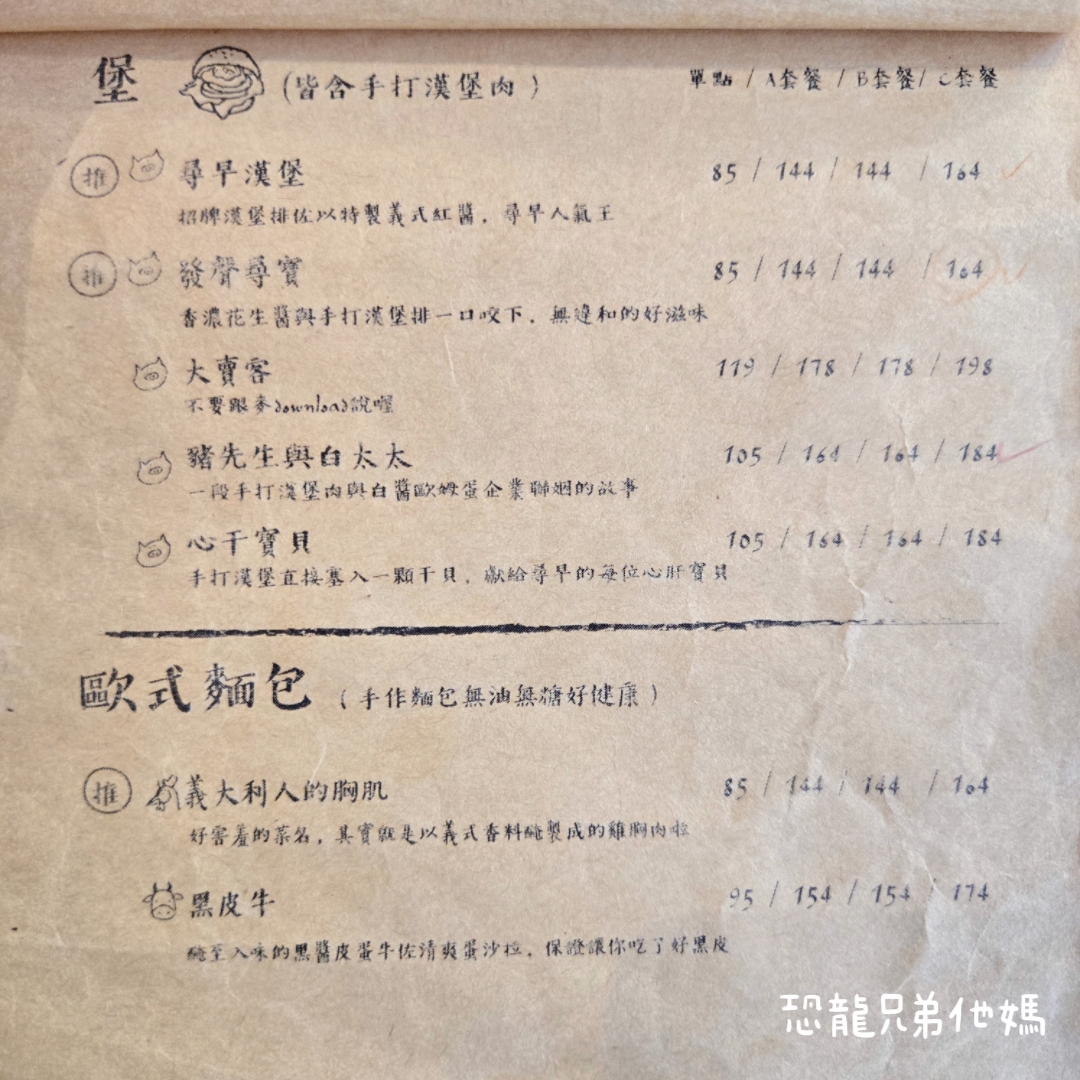 堡 (皆含手打漢堡肉) 單點 / A套餐 / B套餐 / C套餐
推 尋早漢堡 85 / 144 / 144 / 164
招牌漢堡排佐以特製義式紅醬，尋早人氣王
推 發聲尋寶 85 / 144 / 144 / 164
香濃花生醬與手打漢堡排一口咬下，無違和的好滋味
大賣客 119 / 178 / 178 / 198
不要跟麥download說喔
豬先生與白太太 105 / 164 / 164 / 184
一段手打漢堡肉與白醬歐姆蛋企業聯姻的故事
心干寶貝 105 / 164 / 164 / 184
手打漢堡直接塞入一顆干貝，獻給尋早的每位心肝寶貝
歐式麵包 (手作麵包無油無糖好健康)
推 義大利人的胸肌 85 / 144 / 144 / 164
好害羞的菜名，其實就是以義式香料醃製成的雞胸肉啦
黑皮牛 95 / 154 / 154 / 174
醃至入味的黑醬皮蛋牛佐清爽蛋沙拉，保證讓你吃了好黑皮
恐龍兄弟他媽